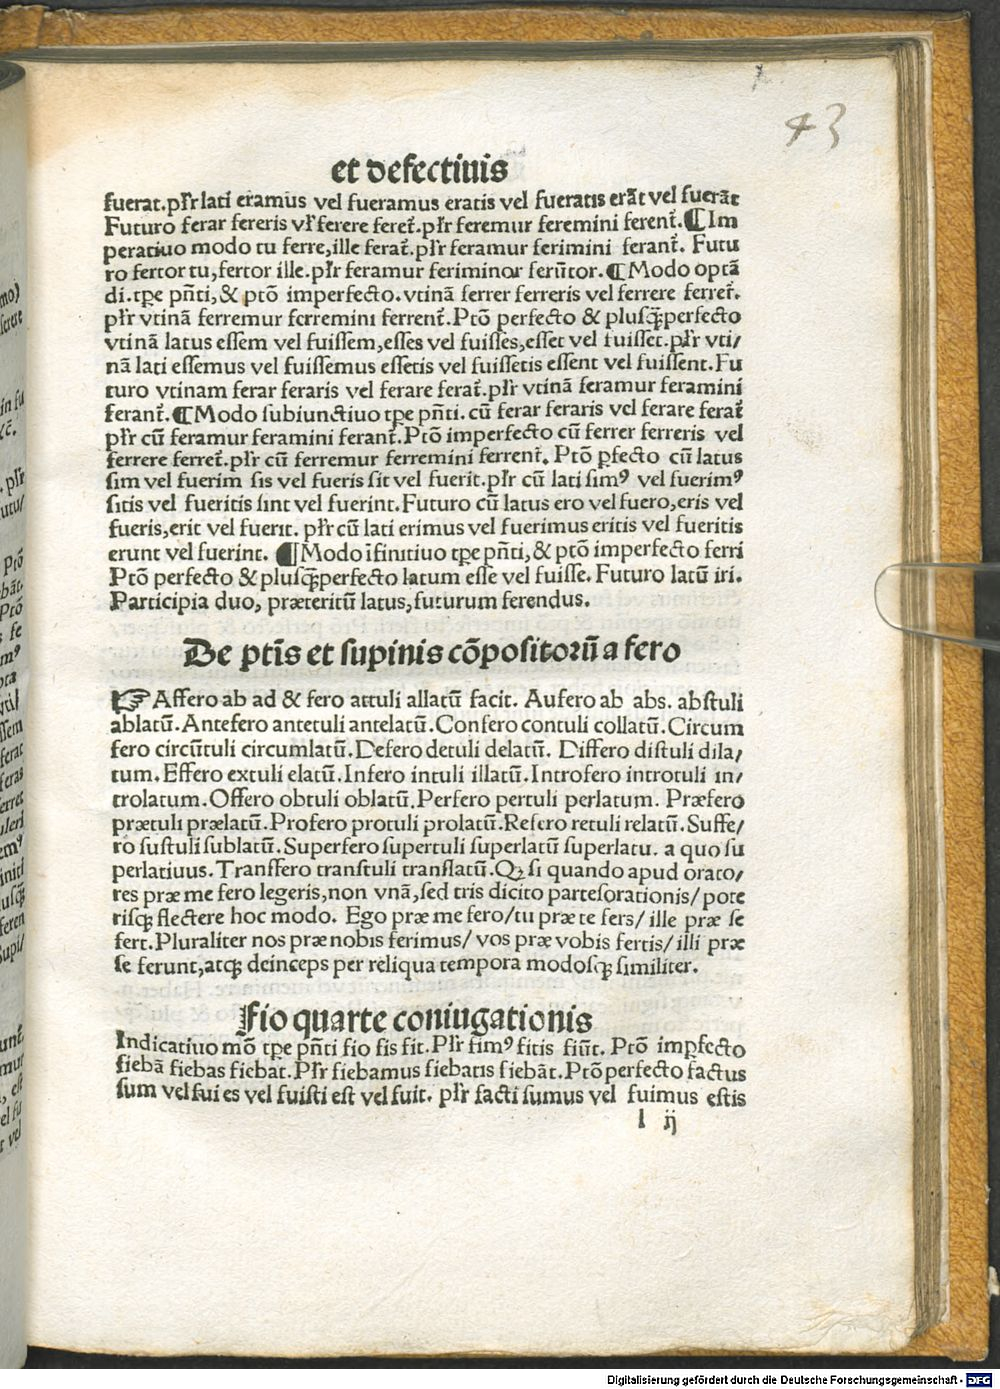 43
et defectiuis
fuerat.pl̃r lati eramus vel fueramus eratis vel fueratis erãt vel fuerãt
Futuro ferar fereris vl̃ ferere feret̃.pl̃r feremur feremini ferent̃.¶Im
peratiuo modo tu ferre,ille ferat̃.pl̃r feramur ferimini ferant̃. Futu
ro fertor tu,fertor ille.pl̃r feramur feriminor ferũtor.¶Modo optã
di.tp̃e pñti,& ptõ imperfecto.vtinã ferrer ferreris vel ferrere ferret̃.
pl̃r vtinã ferremur ferremini ferrent̃.Ptõ perfecto & plusq̃perfecto
vtinã latus essem vel fuissem,esses vel fuisses,esset vel fuisset.pl̃r vti/
nã lati essemus vel fuissemus essetis vel fuissetis essent vel fuissent.Fu
turo vtinam ferar feraris vel ferare ferat̃.pl̃r vtinã feramur feramini
ferant̃.¶Modo subiunctiuo tp̃e pñti.cũ ferar feraris vel ferare ferat̃
pl̃r cũ feramur feramini ferant̃.Ptõ imperfecto cũ ferrer ferreris vel
ferrere ferret̃.pl̃r cũ ferremur ferremini ferrent̃. Ptõ ꝑfecto cũ latus
sim vel fuerim sis vel fueris sit vel fuerit.pl̃r cũ lati simꝰ vel fuerimꝰ
sitis vel fueritis sint vel fuerint.Futuro cũ latus ero vel fuero,eris vel
fueris,erit vel fuerit. pl̃r cũ lati erimus vel fuerimus eritis vel fueritis
erunt vel fuerint. ¶Modo ĩfinitiuo tp̃e pñti,& ptõ imperfecto ferri
Ptõ perfecto & plusq̃perfecto latum esse vel fuisse. Futuro latũ iri.
Participia duo, præteritũ latus,futurum ferendus.
De ptĩs et supinis cõpositorũ a fero
☞Affero ab ad & fero attuli allatũ facit. Aufero ab abs. abstuli
ablatũ.Antefero antetuli antelatũ.Confero contuli collatũ.Circum
fero circũtuli circumlatũ.Defero detuli delatũ. Differo distuli dila/
tum.Effero extuli elatũ.Infero intuli illatũ.Introfero introtuli in/
trolatum.Offero obtuli oblatũ.Perfero pertuli perlatum. Præfero
prætuli prælatũ.Profero protuli prolatũ.Refero retuli relatũ.Suffe/
ro sustuli sublatũ.Superfero supertuli superlatũ superlatu. a quo su
perlatiuus.Transfero transtuli translatũ.Qꝫ si quando apud orato/
res præ me fero legeris,non vnã,sed tris dicito partesorationis/pote
risq̃ flectere hoc modo. Ego præ me fero/tu præ te fers/ille præ se
fert.Pluraliter nos præ nobis ferimus/vos præ vobis fertis/illi præ
se ferunt,atq̃ deinceps per reliqua tempora modosq̃ similiter.
Fio quarte coniugationis
Indicatiuo mõ tp̃e pñti fio fis fit.Pl̃r fimꝰ fitis fiũt. Ptõ imꝑfecto
fiebã fiebas fiebat.Pl̃r fiebamus fiebatis fiebãt.Ptõ perfecto factus
sum vel fui es vel fuisti est vel fuit. pl̃r facti sumus vel fuimus estis
l ij
Digitalisierung gefördert durch die Deutsche Forschungsgemeinschaft - DFG